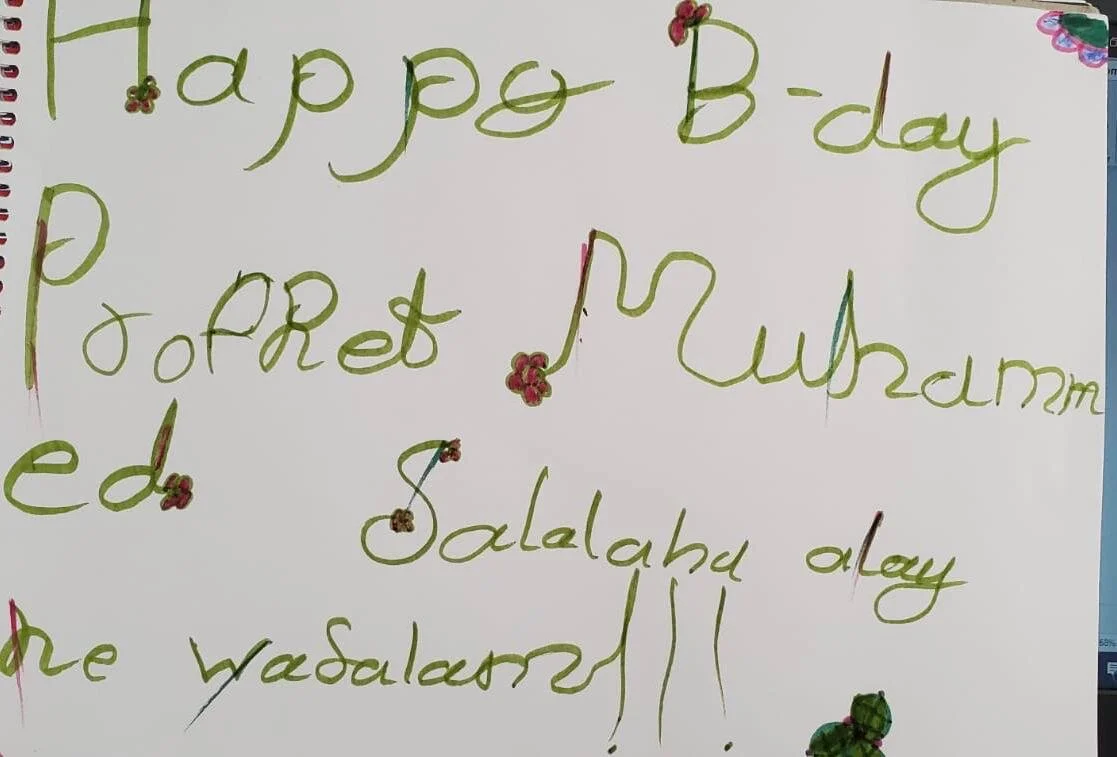 Happy B-day
Prophet Muhamm
ed Salalahu alay
he wasalam!!!